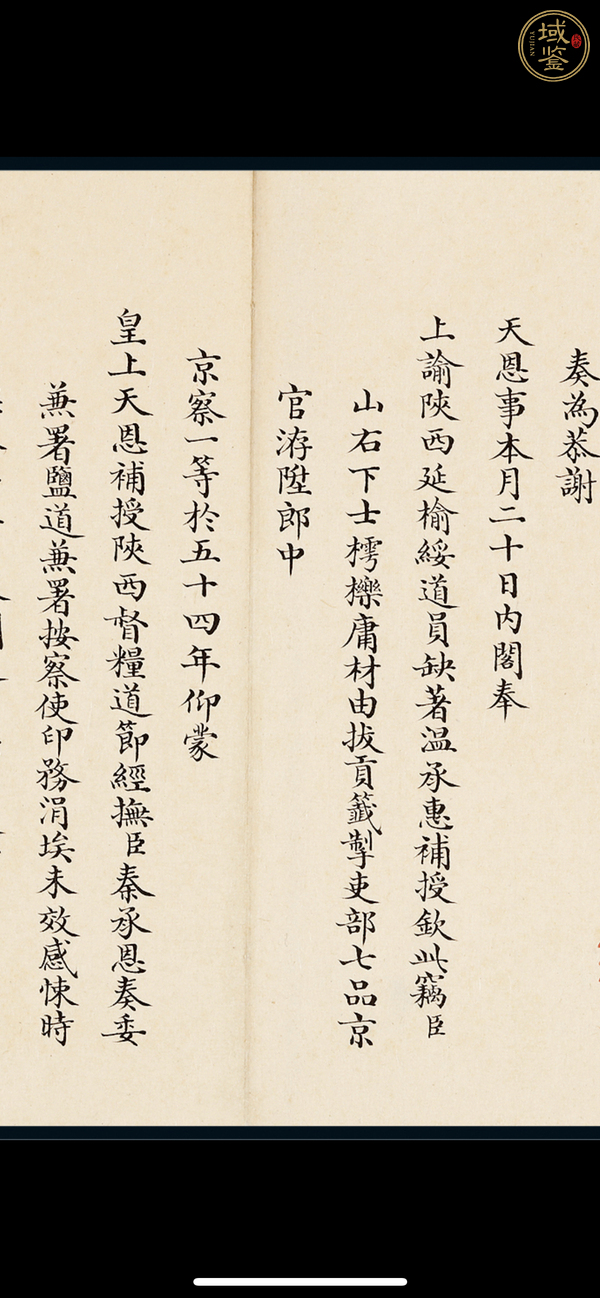 域鉴
YUJIAN
奏為恭謝
天恩事本月二十日內閣奉
上諭陝西延榆綏道員缺著溫承惠補授欽此竊臣
山右下士樗櫟庸材由拔貢籤掣吏部七品京
官洊陞郎中
京察一等於五十四年仰蒙
皇上天恩補授陝西督糧道節經撫臣秦承恩奏委
兼署鹽道兼署按察使印務涓埃未效感悚時